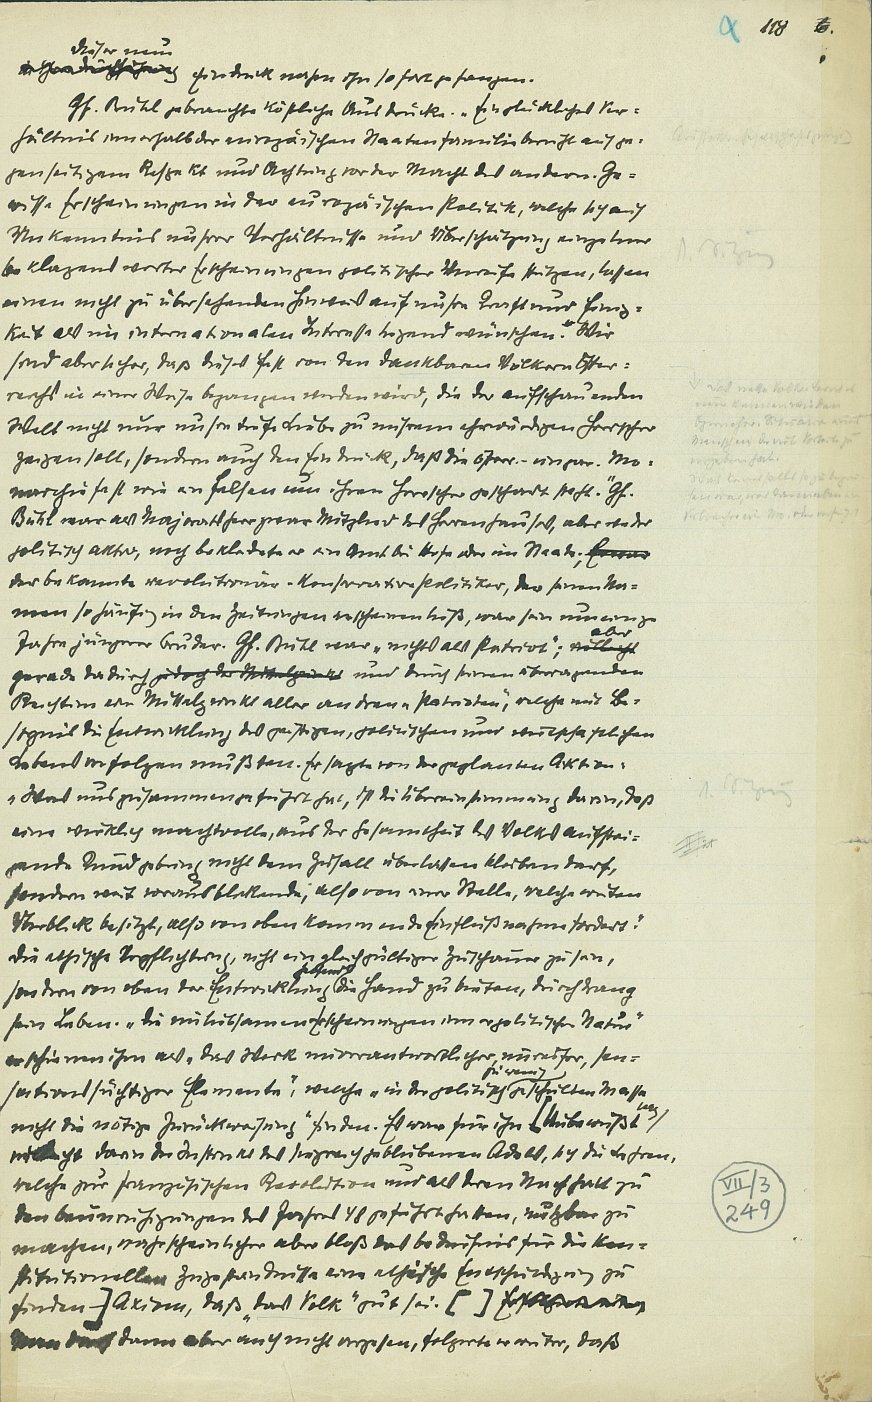 118 6.
dieser neue
Eindruck nahm ihn sofort gefangen.
Gf. Bühl gebrauchte köstliche Ausdrücke. „Ein glückliches Ver-
hältnis innerhalb der europäischen Staatenfamilie beruht auf ge-
genseitigem Respekt und Achtung vor der Macht des andern. Ge-
wisse Erscheinungen in der europäischen Politik, welche sich auf
Unkenntnis unsrer Verhältnisse und Überschätzung einzelner
beklagenswerter Erscheinungen politischer Unreife stützen, lassen
einen nicht zu übersehenden Hinweis auf unsre Kraft und Einig-
keit als im internationalen Interesse liegend wünschen." Wir
sind aber sicher, daß dieses Fest von den dankbaren Völkern Öster-
reichs in einer Weise begangen werden wird, die der aufschauenden
Welt nicht nur unsre tiefe Liebe zu unsrem ehrwürdigen Herrscher
zeigen soll, sondern auch den Eindruck, daß die österr.-ungar. Mo-
narchie fest wie ein Felsen um ihren Herrscher geschart steht." Gf.
Bühl war als Majoratsherr zwar Mitglied des Herrenhauses, aber weder
politisch aktiv, noch bekleidete er ein Amt bei Hofe oder im Staate;
der bekannte revolutionär-konservative Politiker, der seinen Na-
men so häufig in den Zeitungen erscheinen ließ, war sein um einige
Jahre jüngerer Bruder. Gf. Bühl war „nichts als Patriot"; aber
gerade dadurch jedoch der Mittelpunkt und durch seinen überragenden
Reichtum ein Mittelpunkt aller andren „Patrioten", welche mit Be-
sorgnis die Entwicklung des geistigen, politischen und wirtschaftlichen
Lebens verfolgen mußten. Er sagte von der geplanten Aktion:
„Was uns zusammengeführt hat, ist die Übereinstimmung darin, daß
eine wirklich machtvolle, aus der Gesamtheit des Volks aufstei-
gende Kundgebung nicht dem Zufall überlassen bleiben darf,
sondern weit vorausblickende, also von einer Stelle, welche weiten
Überblick besitzt, also von oben kommende Einflußnahme fordert."
Die ethische Verpflichtung, nicht ein gleichgültiger Zuschauer zu sein,
sondern von oben der Entwicklung helfend die Hand zu bieten, durchdrang
sein Leben. „Die unliebsamen Erscheinungen innerpolitischer Natur"
erschienen ihm als „das Werk unverantwortlicher, unreifer, sen-
sationssüchtiger Elemente", welche „in der politisch zu wenig geschulten Masse
nicht die nötige Zurückweisung" finden. Es war für ihn [Unbewußt
darin der Instinkt des siegreich gebliebenen Adels, sich die Lehren,
welche zur französischen Revolution und als deren Nachhall zu
den Beunruhigungen des Jahres 48 geführt hatten, nutzbar zu
machen, wahrscheinlicher aber bloß das Bedürfnis für die kon-
stitutionellen Zugeständnisse eine ethische Entschuldigung zu
finden –] Axiom, daß „das Volk" gut sei. [ ]
Man darf dann aber auch nicht vergessen, folgerte er weiter, daß
VII/3
249